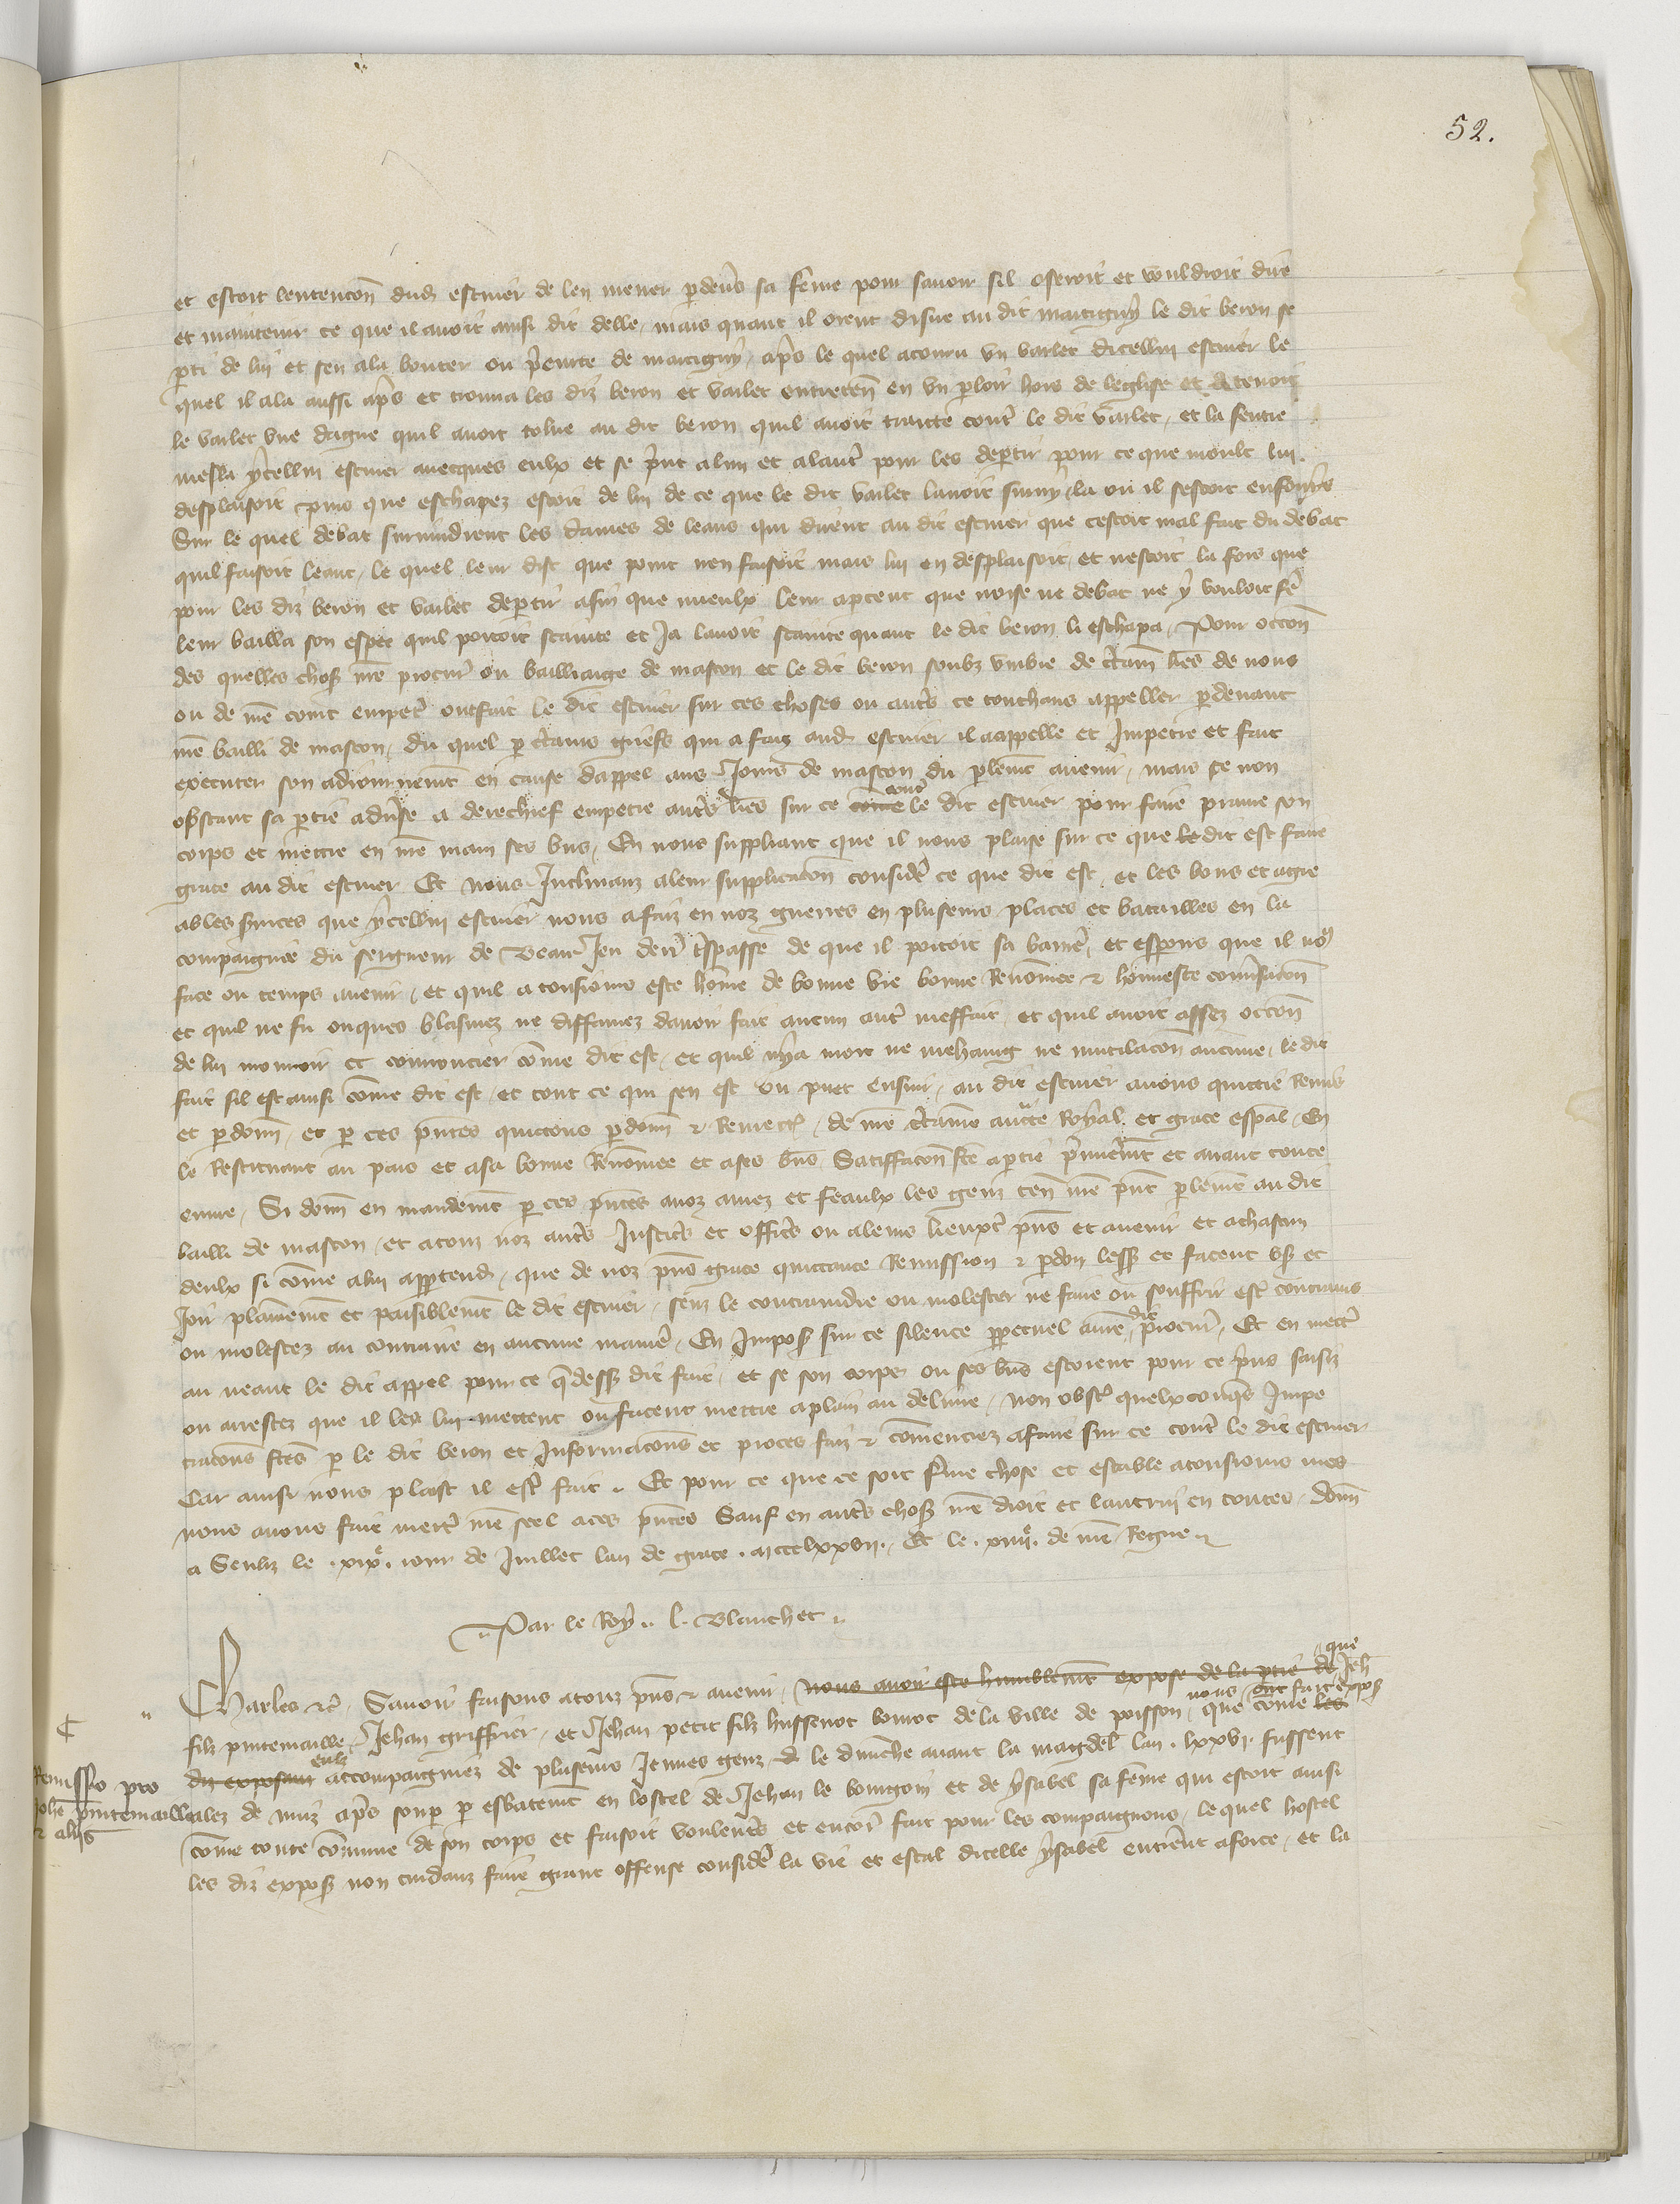 52.
et estoit lentencon dud escuier de len mener pdeus sa feme pour sauoir sil oseroit et vouldroit dire
et maintenir ce que il auoit ainsi dit delle, mais quant il orent disne au dit martigny le dit beron se
pti de lui et sen ala bouter ou prieure de martigny, aps le quel acouru vn varlet dicellui escuier le
quel il ala aussi aps et trouua les diz beron et varlet entreten en vn ploir hors de leglise et detenoit
le varlet vne dague quil auoit tolue au dit beron quil auoit traitte cont le dit varlet, et la sentre
mesla ycellui escuier auecques eulx et se print a lun et alautr pour les deptir pour ce que moult lui
desplaisoit puis que eschapez estoit de lui de ce que le dit varlet lauoit suiuy la ou il sestoit
Sur le quel debat suruindrent les dames de leans qui dirent au dit escuier que cestoit mal fait du debat
quil faisoit leant, le quel leur dist que point nen faisoit mais lui en desplaisoit, et nestoit la fors que
pour les diz beron et varlet deptir afin que mieulx leur apceut que noise ne debat ne y vouloit fe
leur bailla son espee quil portoit scainte et Ja lauoit scainte quant le dit beron li eschapa, Pour occon
des quelles chos nre procur ou bailliaige de mascon et le dit beron soubz vmbre de ctain lres de nous
ou de nre court empetr ontfait le dit escuier sur ces choses ou autrs ce touchans appeller pdeuant
nre bailli de mascon, du quel p ctains griefs qui a faiz aud escuier il aappelle et Impetre et fait
executer son adiournement en cause dappel aus Jours de mascon du plement auenir, mais ce non
obstant sa ptie aduerse a derechief empetre autrs lres sur ce contr le dit escuier pour faire pranre son
corps et mettre en nre main ses bns, En nous suppliant que il nous plaise sur ce que le dit est faire
grace au dit escuier Et nous Inclinanz aleur supplicacon consider ce que dit est, et les bons et agre
ables seruices que ycellui escuier nous a faiz en noz guerres en pluseurs places et batailles en la
compaignie du seigneur de Beau Jeu derr trespasse de que il portoit sa banier, et esperons que il nos
face ou temps auenir, et quil a tousiours este home de bonne vie bonne Renomee & honneste conuersacon
et quil ne fu onques blasmez ne diffamez dauoir fait aucun autr meffait, et quil auoit assez occon
de lui mouuoir et courroucier come dit est, et quil nya mort ne mehaing ne mutilacon aucune, le dit
fait sil est ainsi come dit est, et tout ce qui sen est ou puet ensuir, au dit escuier auons quictie Remis
et pdonn, et p ces pntes quictons pdonn & Remett, de nre ctaine aucte Royal et grace espal, En
le Restituant au pais et asa bonne Renomee et ases bns Satiffacon fte aptie premierement et auant toute
euure, Si donn en mandement p ces pntes anoz amez et feaulx les genz ten nre pnt plement au dit
bailli de mascon, et atouz noz autrs Justic et officrs ou aleurs lieuxt pns et auenir et achascun
deulx si come alui apptend, que de noz pns grace quictance Remission & pdon lessz et facent vs et
Joir plainement et paisiblement le dit escuier, senz le contraindre ou molester ne faire ou souffrir est contrains
ou molestez au contraire en aucune manier, En Impos sur ce silence ppetuel anre dit procur, Et en mectr
au neant le dit appel pour ce q dess dit fait, et se son corps ou ses bns estoient pour ce prins saisiz
ou arrestez que il les lui mettent ou facent mettre aplain au deliure, non obst quelxconqs Impe
tracons ftes p le dit beron et Informacons et proces faiz & comenciez afaire sur ce contr le dit escuier
Car ainsi nous plaist il estr fait. Et pour ce que ce soit ferme chose et estable atousiours mes
nous auons fait mettr nre seel aces pntes Sauf en autrs chos nre droit et lautrui en toutes, donn
a Senliz le .xix.e iour de Juillet lan de grace .mccclxxvii. Et le .xiiii.e de nre Regne
Par le Roy .. L. Blanchet ..
Charles &c Sauoir faisons atouz pns & auenir, nous auoir este humblement expose de la ptie de que Jeh
filz pintemaille, Jehan griffrier, et Jehan petit filz hussenot bomot de la ville de poisson, nous ont fait expos que come les
diz exposans eulz accompaigniez de pluseurs Jeunes genz, le dimche auant la magdel lan .lxxvi. fussent
alez de nuiz aps soup p esbatement en lostel de Jehan le bourgoin et de ysabel sa feme qui estoit ainsi
come toute comune de son corps et faisoit voulentrs et encor fait pour les compaignons, le quel hostel
les diz expos non cuidanz faire grant offense consider la vie et estat dicelle ysabel entrerent aforce, et la
Remissio pro
Johe pintemaille
& aliis